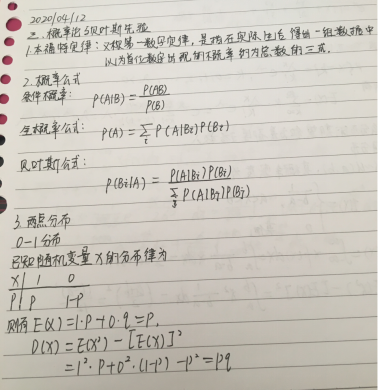 2020/04/12
三. 概率论与贝叶斯先验
1.本福特定律:又称第一数字定律,是指在实际生活得出的一组数据中
以1为首位数字出现的概率约为总数的三成.
2.概率公式
条件概率: P(A|B) = P(AB) / P(B)
全概率公式: P(A) = Σi P(A|Bi)P(Bi)
贝叶斯公式:
P(Bi|A) = P(A|Bi)P(Bi) / Σj P(A|Bj)P(Bj)
3.两点分布
0-1分布
已知随机变量X的分布律为
X | 1 0
P | P 1-P
则有 E(X)=1·P+0·q=P.
D(X) = E(X²) - [E(X)]²
= 1²·P+0²·(1-P) - P² = Pq